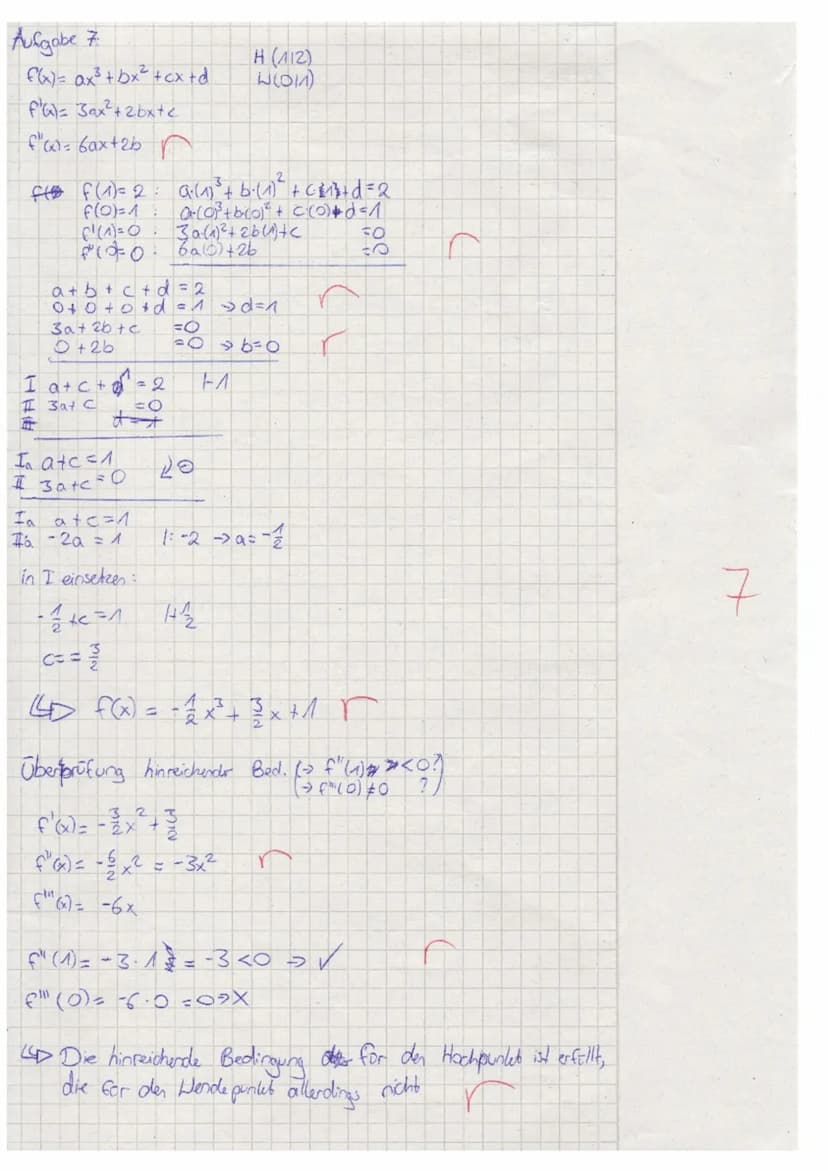 Aufgabe 7
H(1|2)
f(x) = ax³ + bx² + cx + d
W(0|1)
f'(x) = 3ax² + 2bx + c
f''(x) = 6ax + 2b
f(1) = 2 : a·(1)³ + b·(1)² + c(1) + d = 2
f(0) = 1 : a·(0)³ + b(0)² + c·(0) + d = 1
f'(1) = 0 : 3a(1)² + 2b(1) + c = 0
f''(0) = 0 : 6a(0) + 2b = 0
a + b + c + d = 2
0 + 0 + 0 + d = 1 → d = 1
3a + 2b + c = 0
0 + 2b = 0 → b = 0
I a + c + 1 = 2 |-1
II 3a + c = 0
III d = 1
Ia a + c = 1
II 3a + c = 0
Ia a + c = 1
IIa -2a = 1 |: -2 → a = -1/2
in I einsetzen:
7
-1/2 + c = 1 |+1/2
c = = 3/2
↳ f(x) = -1/2 x³ + 3/2 x + 1
Überprüfung hinreichender Bed. (→ f''(1) < 0?)
(→ f'''(0) ≠ 0 ?)
f'(x) = -3/2 x² + 3/2
f''(x) = -6/2 x² = -3x²
f'''(x) = -6x
f''(1) = -3·1 = -3 < 0 → ✓
f'''(0) = -6·0 = 0 → X
↳ Die hinreichende Bedingung für den Hochpunkt ist erfüllt,
die für den Wendepunkt allerdings nicht